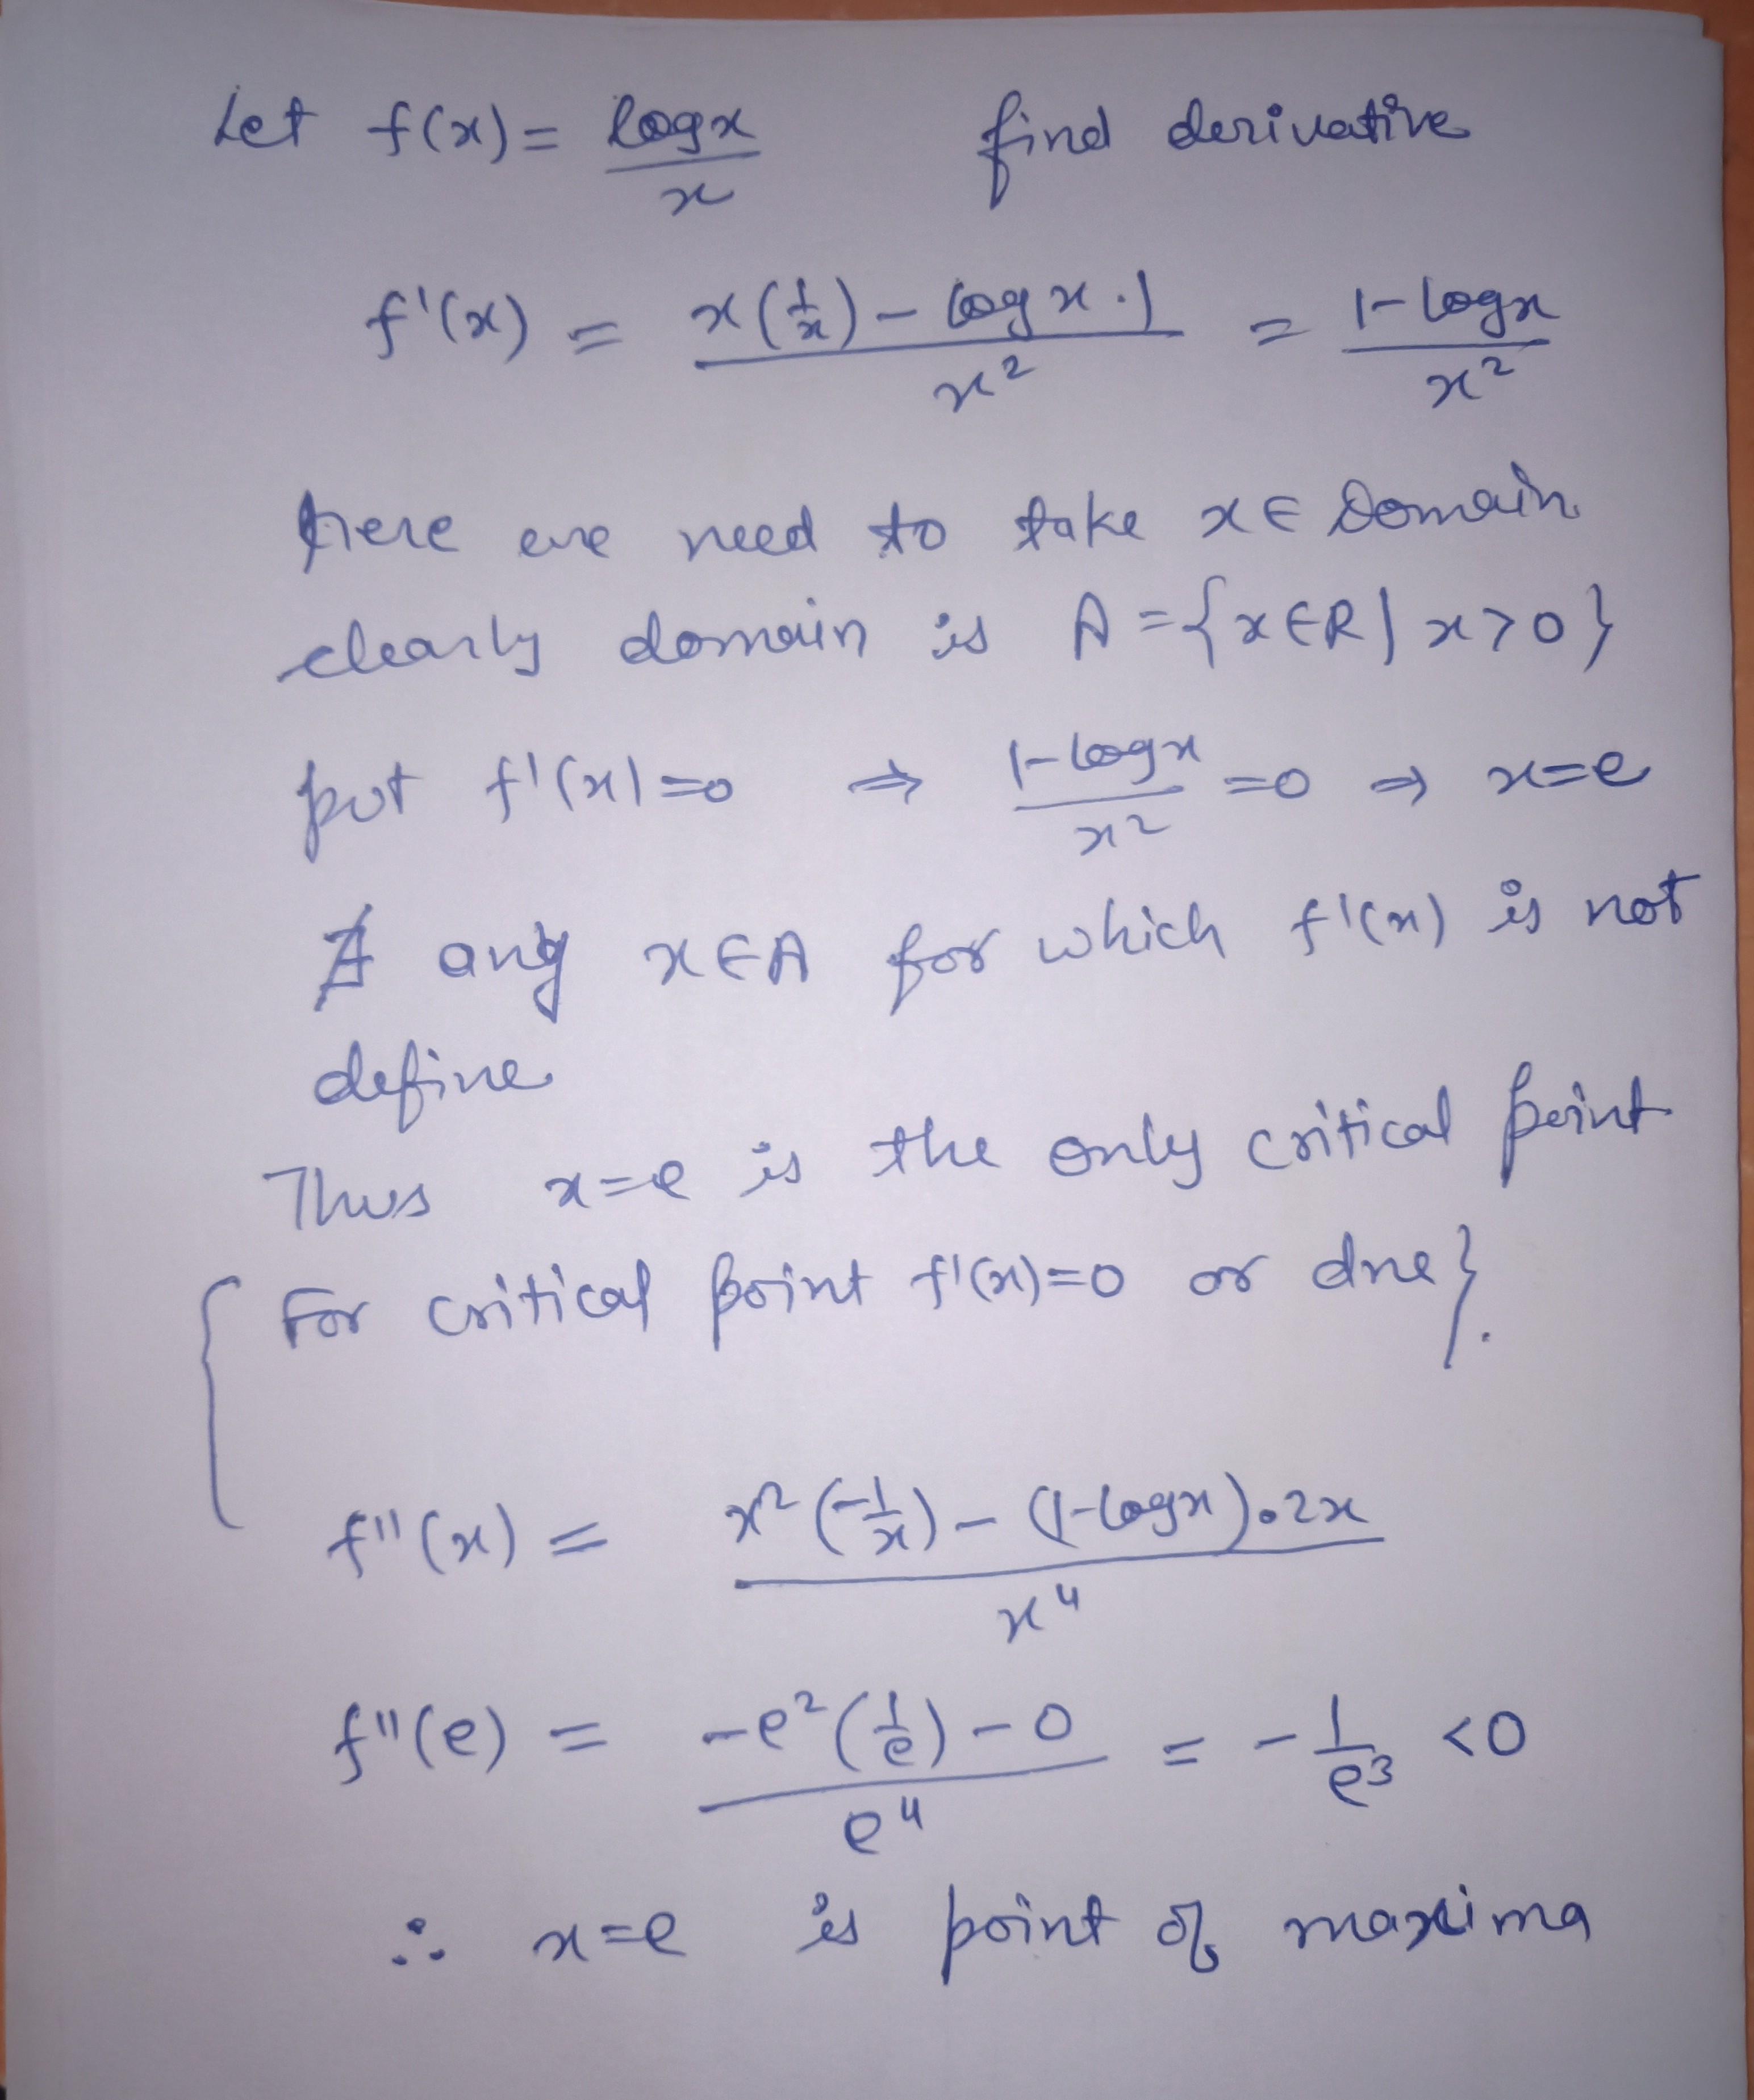 Let f(x) = log x / x find derivative
f'(x) = x(1/x) - log x . 1 / x² = 1 - log x / x²
here we need to take x ∈ Domain
clearly domain is A = {x ∈ R | x > 0}
put f'(x) = 0 ⇒ 1 - log x / x² = 0 ⇒ x = e
∄ any x ∈ A for which f'(x) is not
define
Thus x = e is the only critical point
{For critical point f'(x) = 0 or dne}.
f''(x) = x²(-1/x) - (1 - log x).2x / x⁴
f''(e) = -e²(1/e) - 0 / e⁴ = -1/e³ < 0
∴ x = e is point of maxima